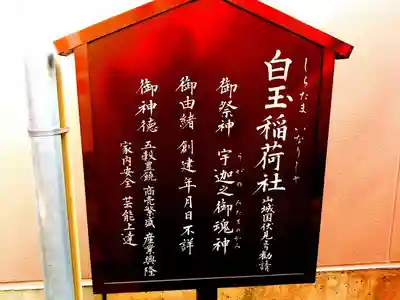 白玉稲荷社 山城国伏見より勧請
しらたま いなりしや
御祭神 宇迦之御魂神
うがの みたまのかみ
御由緒 創建年月日不詳
御神徳 五穀豊饒 商売繁盛 産業興隆
家内安全 芸能上達